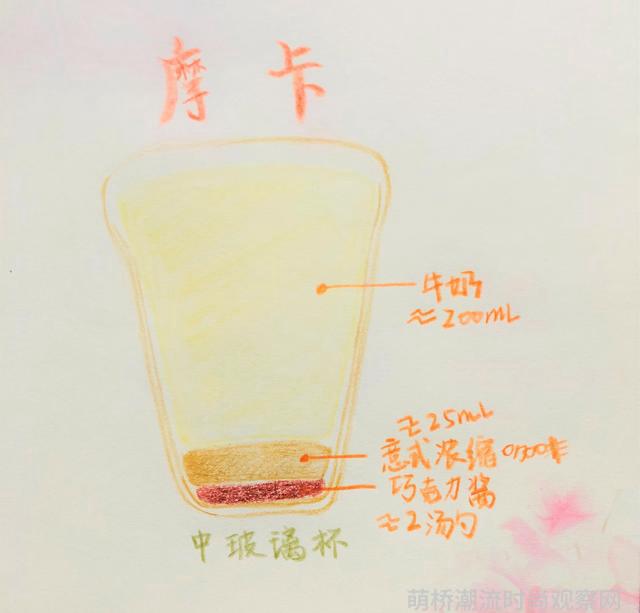 摩卡
牛奶
≈200mL
≈25mL
意式浓缩
巧克力酱
≈2汤勺
中玻璃杯
萌桥潮流时尚观察网